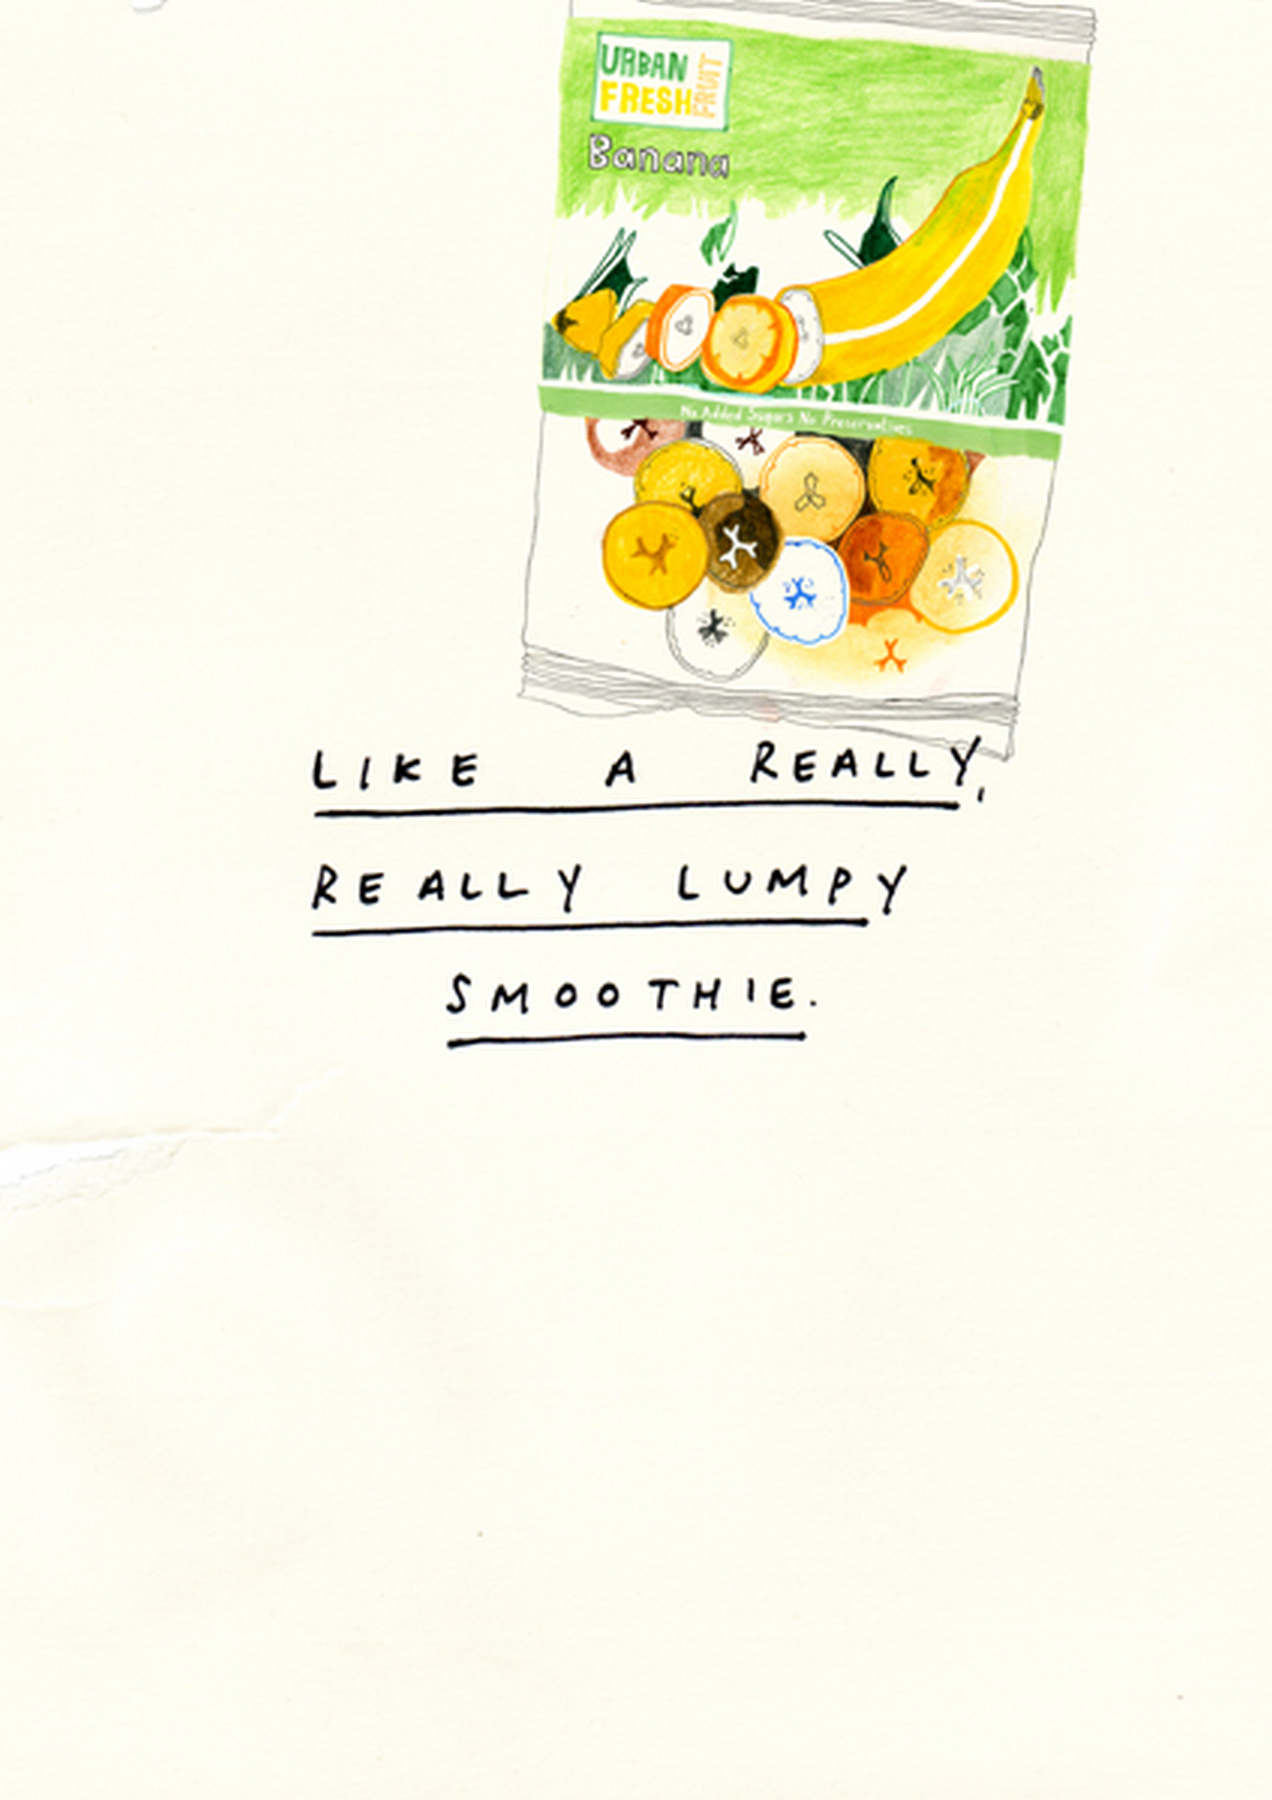 URBAN
FRESH FRUIT
Banana
No Added Sugars No Preservatives
LIKE A REALLY,
REALLY LUMPY
SMOOTHIE.